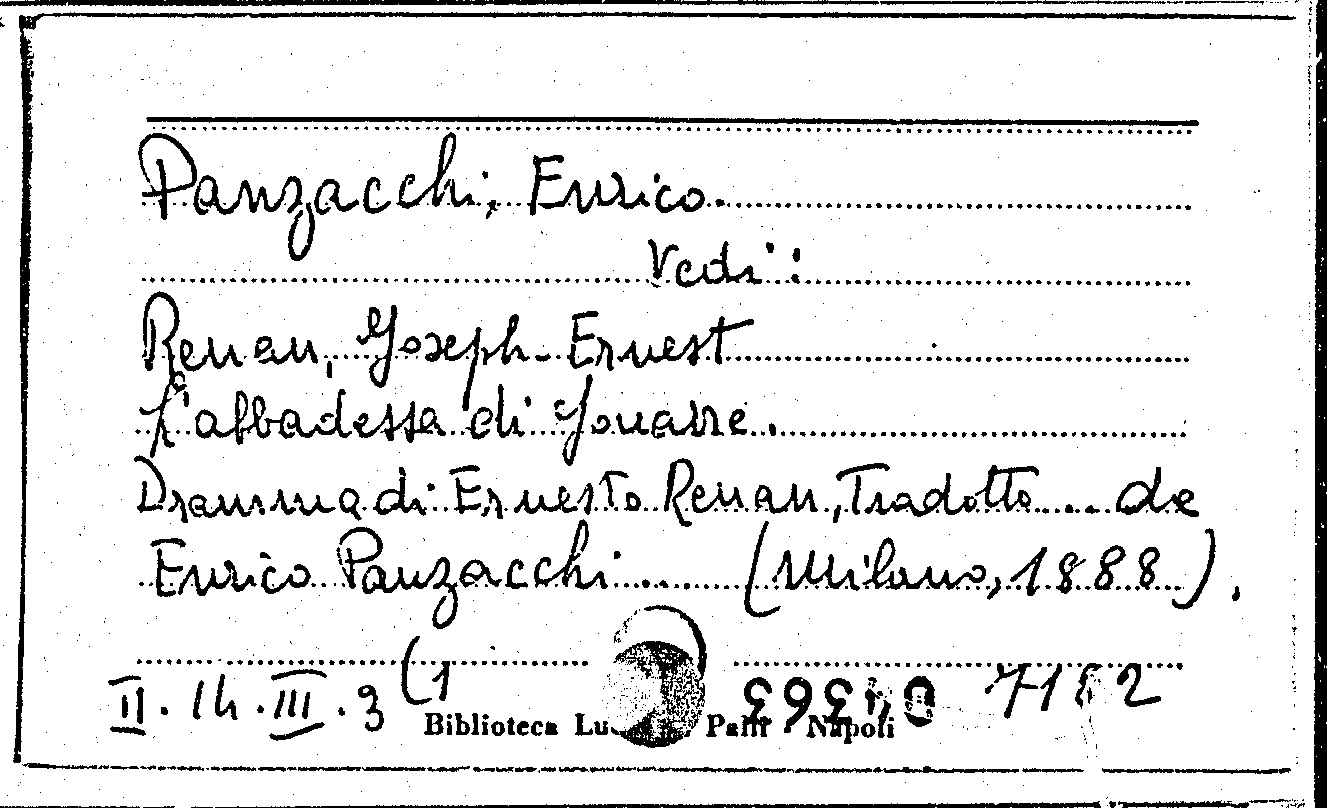 Panzacchi, Enrico.
Vedi:
Renan, Joseph-Ernest
L'abbadessa di Jouarre.
Dramma di Ernesto Renan, Tradotto... da
Enrico Panzacchi... (Milano, 1888).
II. 14. III. 3 (1
Biblioteca Napoli